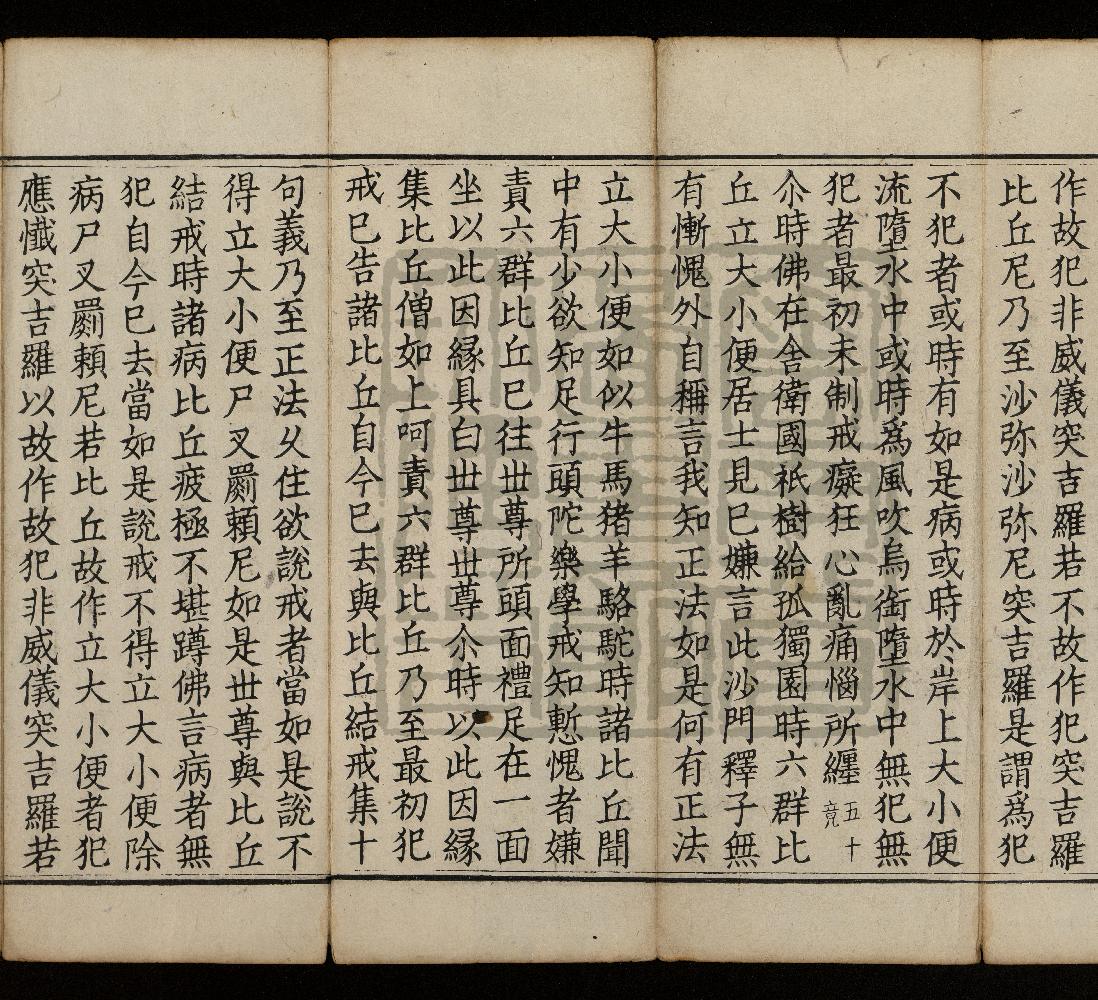 作故犯非威儀突吉羅若不故作犯突吉羅
比丘尼乃至沙弥沙弥尼突吉羅是謂爲犯
不犯者或時有如是病或時於岸上大小便
流墮水中或時爲風吹烏銜墮水中無犯無
犯者最初未制戒癡狂心亂痛惱所纏五十竟
尒時佛在舍衛國祇樹給孤獨園時六群比
丘立大小便居士見已嫌言此沙門釋子無
有慚愧外自稱言我知正法如是何有正法
立大小便如似牛馬猪羊駱駝時諸比丘聞
中有少欲知足行頭陀樂學戒知慙愧者嫌
責六群比丘已往世尊所頭面禮足在一面
坐以此因緣具白世尊世尊尒時以此因緣
集比丘僧如上呵責六群比丘乃至最初犯
戒已告諸比丘自今已去與比丘結戒集十
句義乃至正法久住欲說戒者當如是說不
得立大小便尸叉罽賴尼如是世尊與比丘
結戒時諸病比丘疲極不堪蹲佛言病者無
犯自今已去當如是說戒不得立大小便除
病尸叉罽賴尼若比丘故作立大小便者犯
應懺突吉羅以故作故犯非威儀突吉羅若